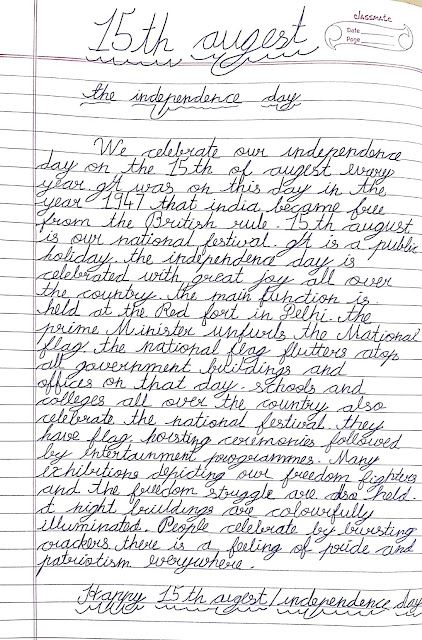 classmate
Date
Page
15th augest
the independence day
We celebrate our independence
day on the 15th of augest every
year. It was on this day in the
year 1947 that india became free
from the British rule. 15th august
is our national festival. It is a public
holiday. the independence day is
celebrated with great joy all over
the country. the main function is
held at the Red fort in Delhi. the
prime Minister unfurls the National
flag. the national flag flutters atop
all government buildings and
offices on that day. schools and
colleges all over the country also
celebrate the national festival. they
have flag hoisting ceremonies followed
by entertainment programmes. Many
exhibitions depicting our freedom fighters
and the freedom struggle are also held.
t night buildings are colourfully
illuminated. People celebrate by bursting
crackers. there is a feeling of pride and
patriotism everywhere.
Happy 15th augest/independence day